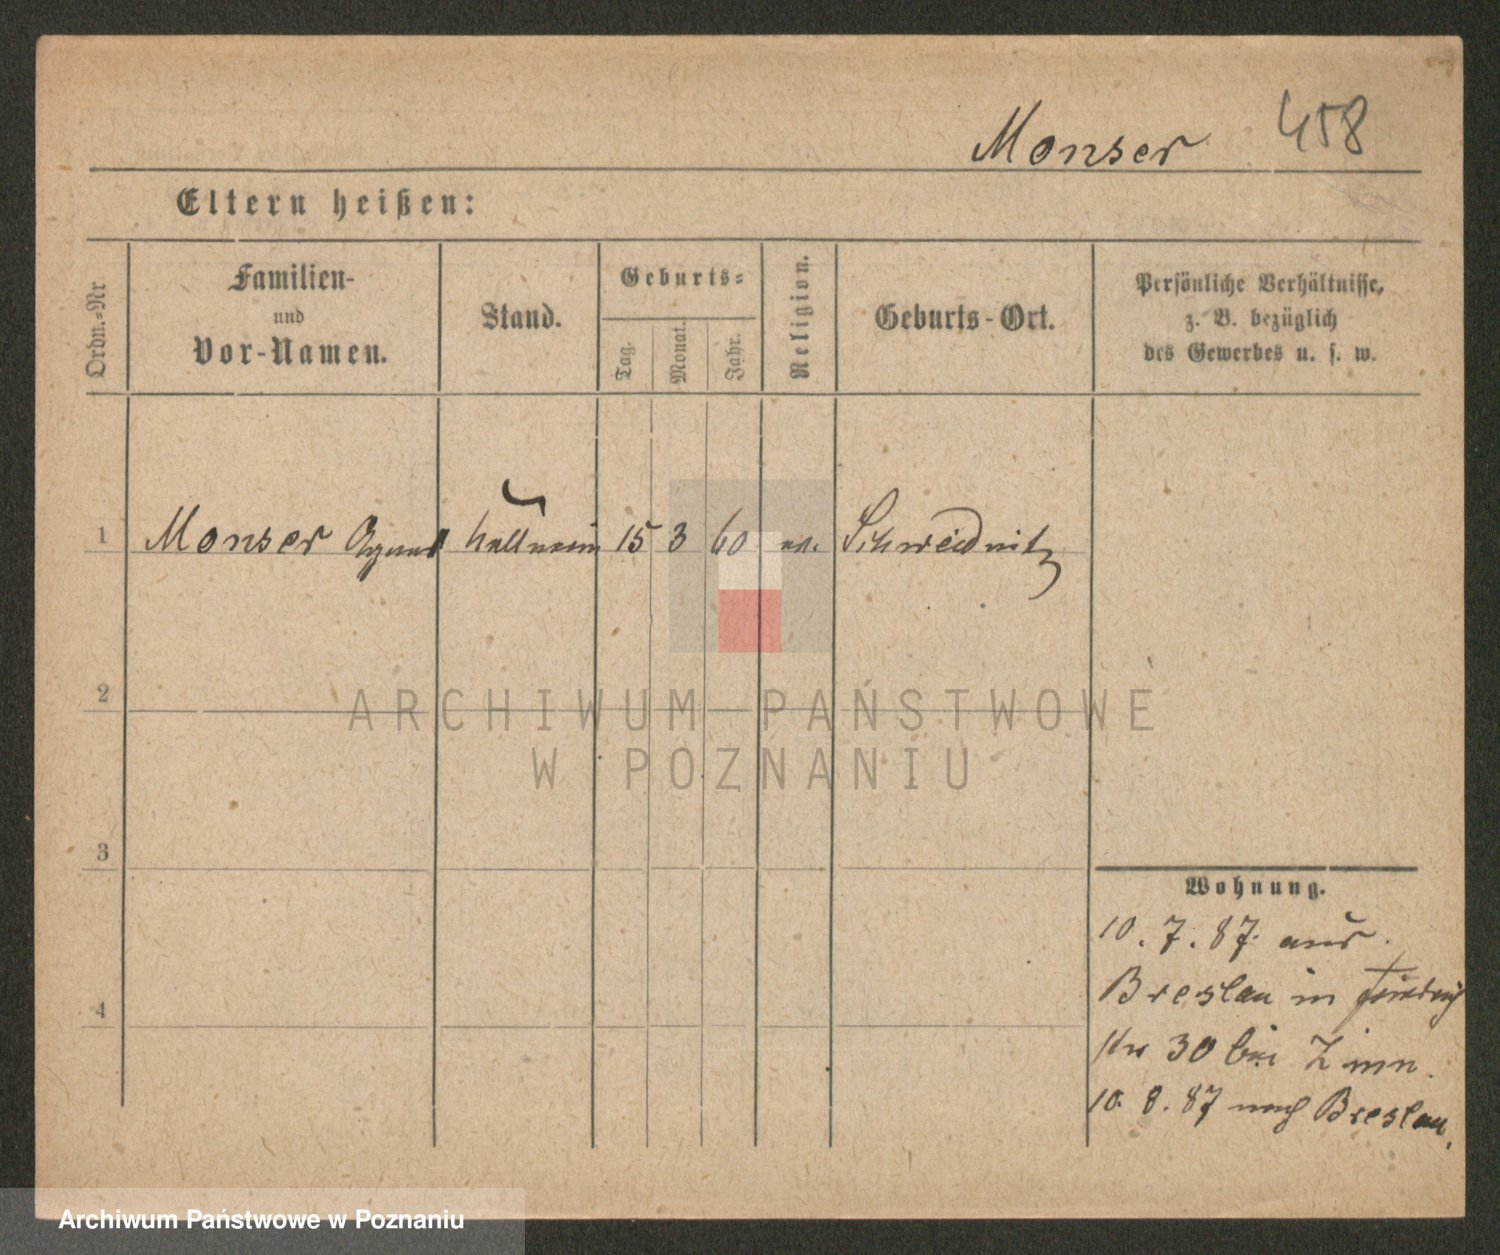 Monser 458
Eltern heißen:
Ordn.-Nr
Familien-
und
Vor-Namen.
Stand.
Geburts-
Tag.
Monat.
Jahr.
Religion.
Geburts-Ort.
Persönliche Verhältnisse,
z. B. bezüglich
des Gewerbes u. s. w.
1 Monser 15 3 60 Schweidnitz
2
3
4
Wohnung.
10. 7. 87. aus
Breslau in Friedrich
30 bei Zinn.
10. 8. 87 nach Breslau.
ARCHIWUM PAŃSTWOWE
W POZNANIU
Archiwum Państwowe w Poznaniu